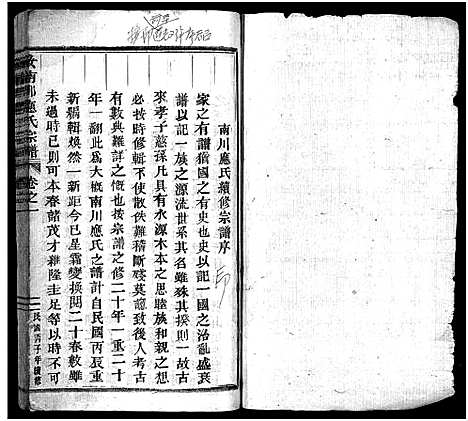 南川應氏續修宗譜序
家之有譜猶國之有史也史以記一國之治亂盛衰
譜以記一族之源流世系其名雖殊其揆則一故古
來孝子慈孫凡具有水源木本之思睦族和親之想
必按時修輯不使散佚難稽斷殘莫憶致後人考古
有數典難詳之慨也按宗譜之修二十年一重二十
年一翻此爲大概南川應氏之譜計自民國丙辰重
新編輯煥然一新距今已星霜變換閱二十春敎雖
未過時已則可本春諸茂才雜隆圭足等以時不可
汝南郡應氏宗譜
卷之一
民國丙子年續修